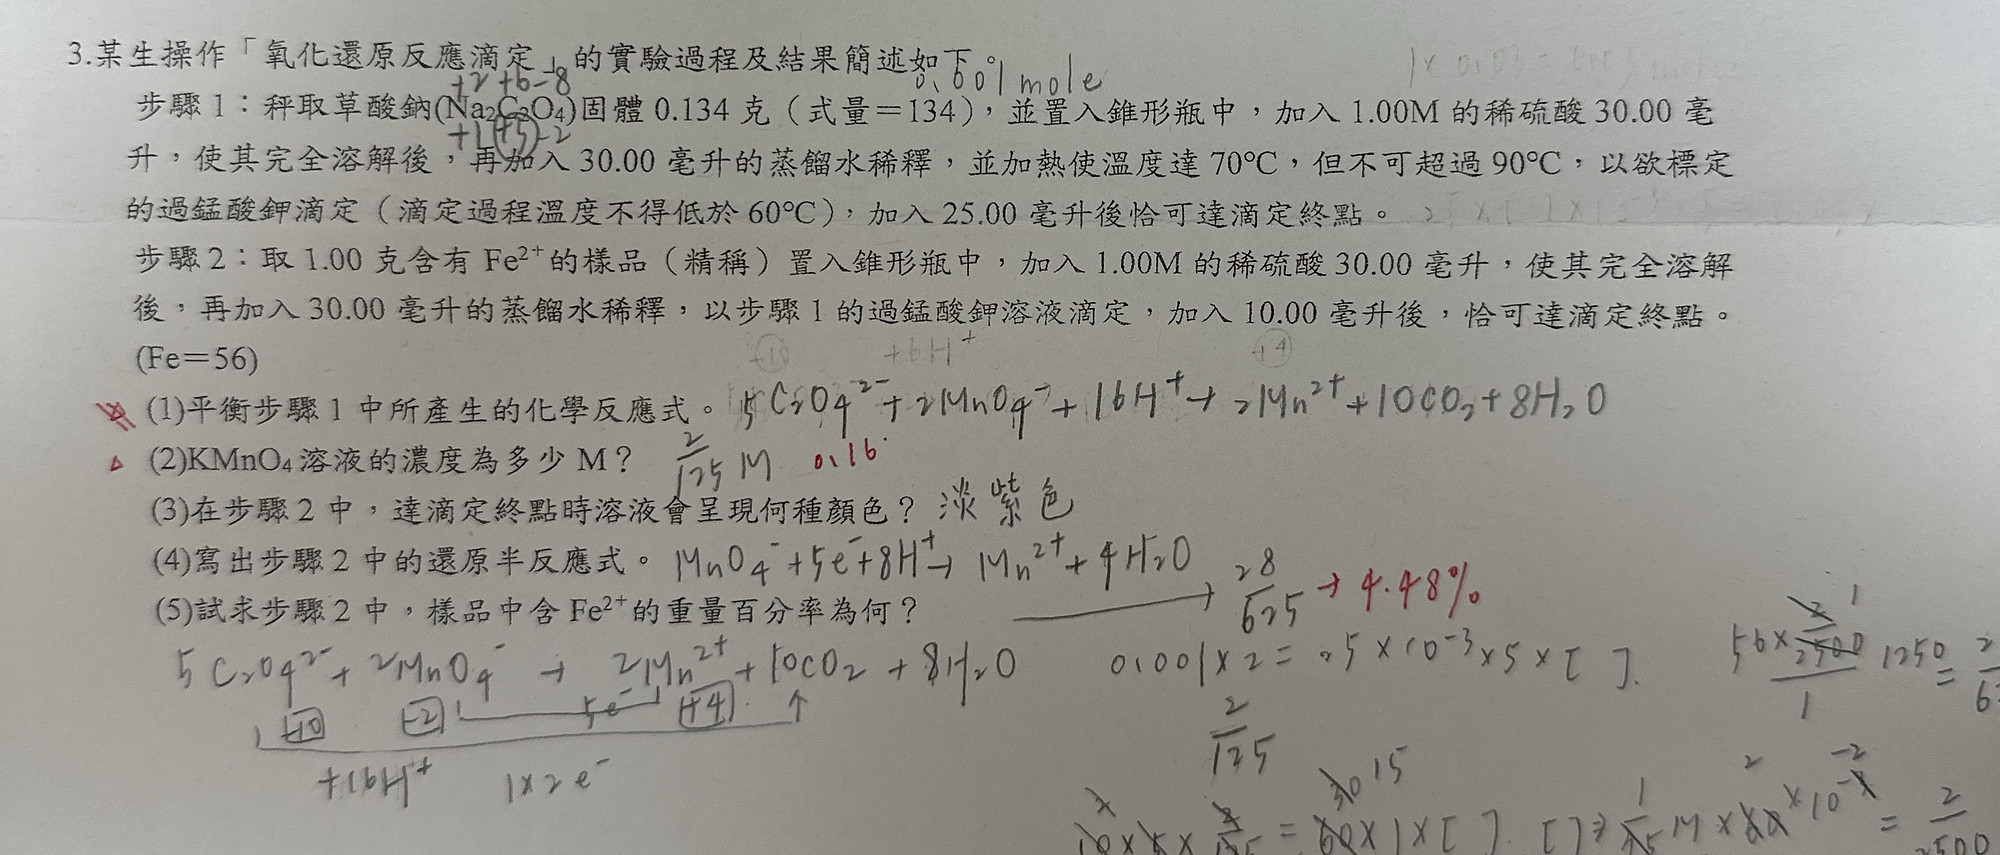 3.某生操作「氧化還原反應滴定」的實驗過程及結果簡述如下。
+2 +6 -8
0.001 mole
步驟1：秤取草酸鈉(Na₂C₂O₄)固體 0.134 克（式量＝134），並置入錐形瓶中，加入 1.00M 的稀硫酸 30.00 毫
+1 +3 -2
升，使其完全溶解後，再加入 30.00 毫升的蒸餾水稀釋，並加熱使溫度達 70°C，但不可超過 90°C，以欲標定
的過錳酸鉀滴定（滴定過程溫度不得低於 60°C），加入 25.00 毫升後恰可達滴定終點。
步驟2：取 1.00 克含有 Fe²⁺的樣品（精稱）置入錐形瓶中，加入 1.00M 的稀硫酸 30.00 毫升，使其完全溶解
後，再加入 30.00 毫升的蒸餾水稀釋，以步驟 1 的過錳酸鉀溶液滴定，加入 10.00 毫升後，恰可達滴定終點。
(Fe＝56)
+10 +6H⁺ +4
(1)平衡步驟 1 中所產生的化學反應式。 5C₂O₄²⁻ + 2MnO₄⁻ + 16H⁺ → 2Mn²⁺ + 10CO₂ + 8H₂O
(2)KMnO₄ 溶液的濃度為多少 M？ 2/125 M 0.16
(3)在步驟 2 中，達滴定終點時溶液會呈現何種顏色？ 淡紫色
(4)寫出步驟 2 中的還原半反應式。 MnO₄⁻ + 5e⁻ + 8H⁺ → Mn²⁺ + 4H₂O
(5)試求步驟 2 中，樣品中含 Fe²⁺的重量百分率為何？ → 28/625 → 4.48%
5C₂O₄²⁻ + 2MnO₄⁻ → 2Mn²⁺ + 10CO₂ + 8H₂O
0.001 × 2 = 25 × 10⁻³ × 5 × [ ].
+10 -2 5e⁻ +4
2/125
+16H⁺ 1×2e⁻